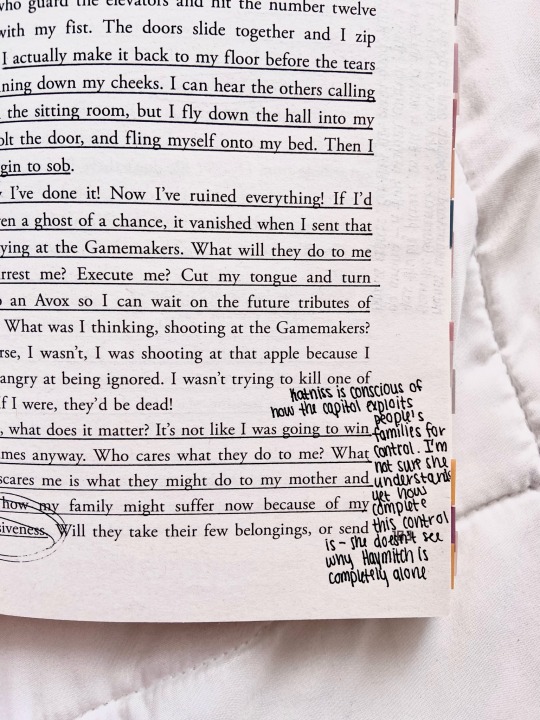 who guard the elevators and hit the number twelve
with my fist. The doors slide together and I zip
I actually make it back to my floor before the tears
ning down my cheeks. I can hear the others calling
the sitting room, but I fly down the hall into my
olt the door, and fling myself onto my bed. Then I
gin to sob.
I've done it! Now I've ruined everything! If I'd
en a ghost of a chance, it vanished when I sent that
ying at the Gamemakers. What will they do to me
rrest me? Execute me? Cut my tongue and turn
o an Avox so I can wait on the future tributes of
What was I thinking, shooting at the Gamemakers?
rse, I wasn't, I was shooting at that apple because I
angry at being ignored. I wasn't trying to kill one of
f I were, they'd be dead!
, what does it matter? It's not like I was going to win
mes anyway. Who cares what they do to me? What
scares me is what they might do to my mother and
how my family might suffer now because of my
siveness. Will they take their few belongings, or send
Katniss is conscious of
how the capitol exploits
people's
families for
control. I'm
not sure she
understands
yet how
complete
this control
is - she doesn't see
why Haymitch is
completely alone